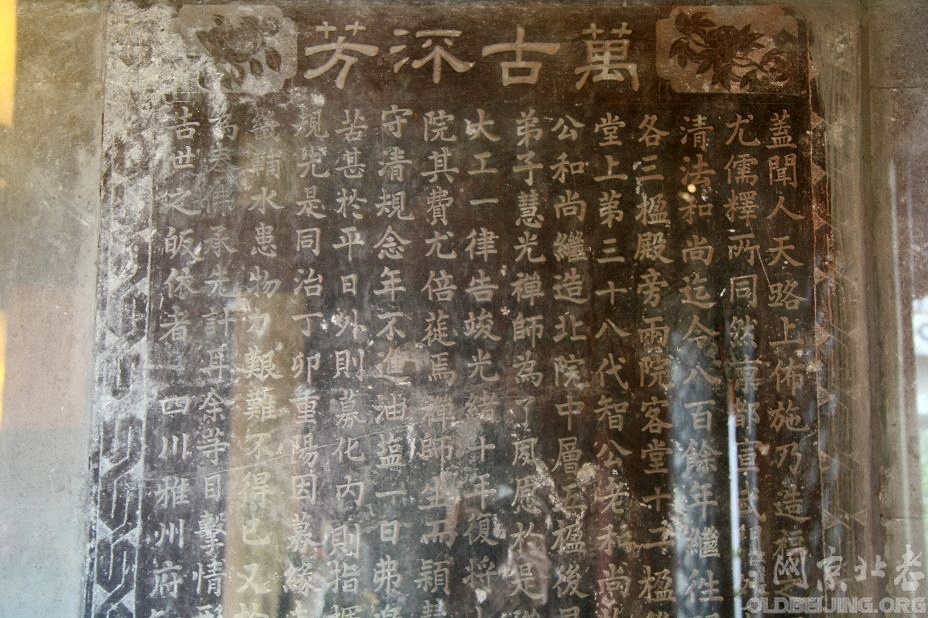 萬古流芳
蓋聞人天路上佈施乃造福
尤儒釋所同然京都宣武門外
清法和尚迄今八百餘年繼往
各三楹殿旁兩院客堂十二楹
堂上第三十八代智公老和尚
公和尚繼造北院中層五楹後
弟子慧光禪師為了夙愿於吳
大工一律告竣光緒十年復將
院其費尤倍蓰焉禪師生而穎
守清規念年不進油鹽一日弗
苦甚於平日外則募化內則指
規先是同治丁卯重陽因募緣
畿輔水患物力艱難不得已又
為奉佛承先計耳余等目擊情
告世之皈依者 四川雅州府
老北京网
OLDBEIJING.ORG